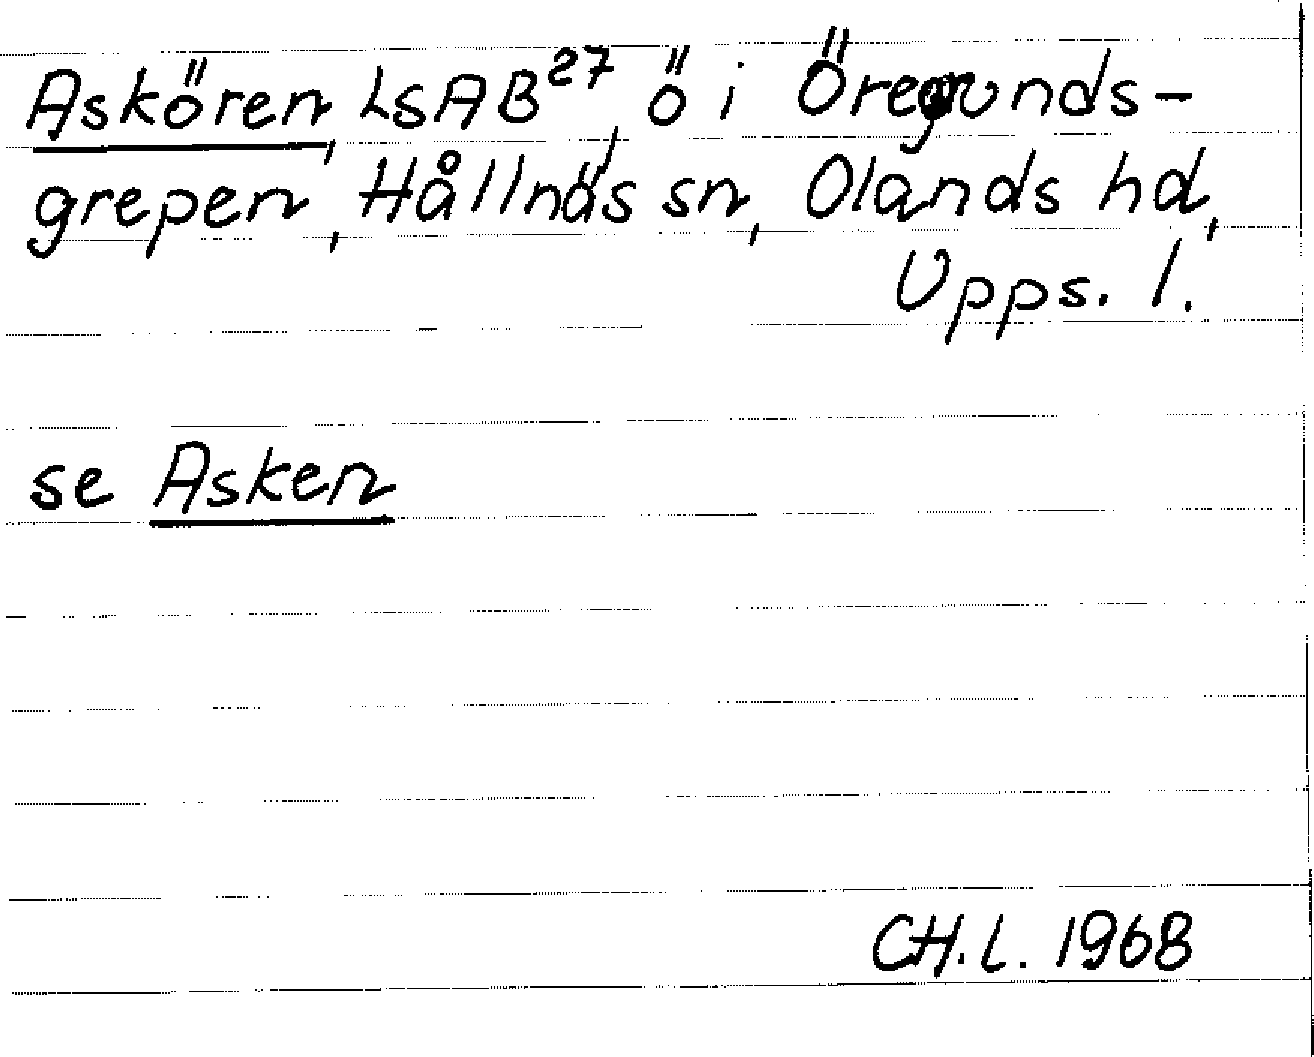 Askören, LSAB27, ö i Öregrunds-
grepen, Hållnäs sn, Olands hd,
Upps. l.
se Asken
CH.L. 1968